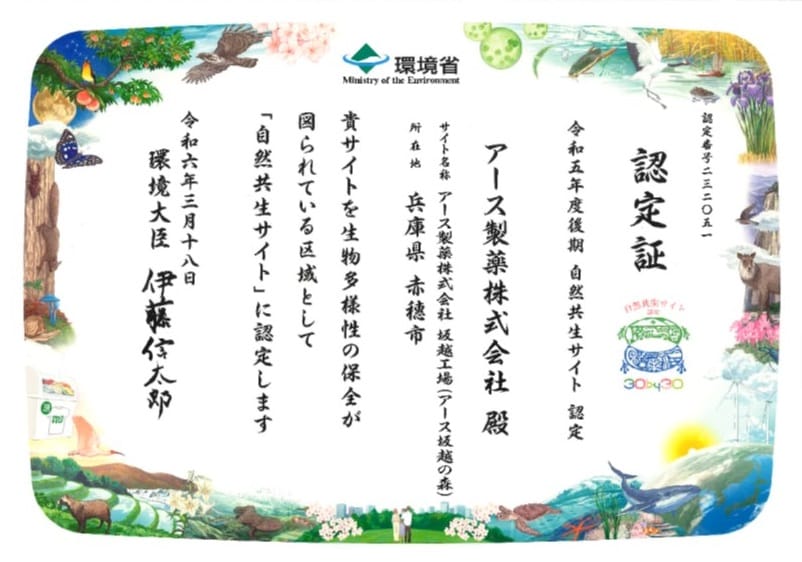 環境省
Ministry of the Environment
認定番号二三二〇五一
認定証
自然共生サイト
認定
30by30
令和五年度後期 自然共生サイト 認定
アース製薬株式会社 殿
サイト名称 アース製薬株式会社 坂越工場(アース坂越の森)
所在地 兵庫県 赤穂市
貴サイトを生物多様性の保全が
図られている区域として
「自然共生サイト」に認定します
令和六年三月十八日
環境大臣 伊藤信太郎